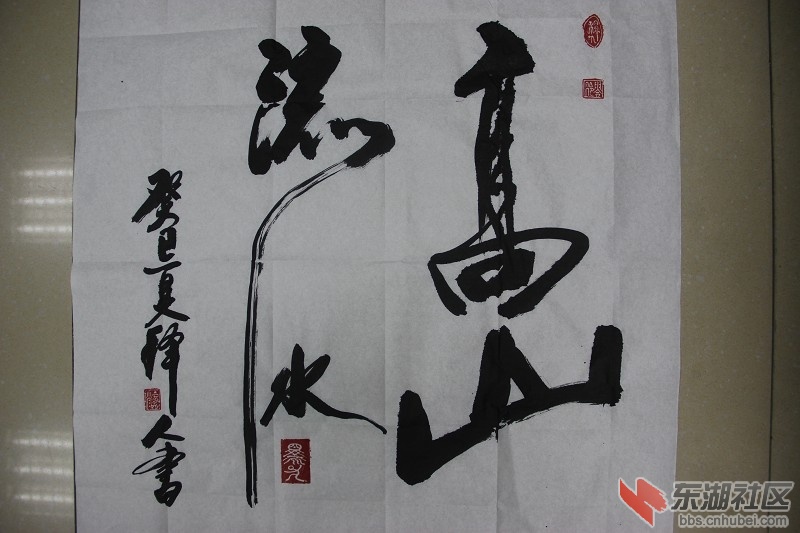 高山
流水
癸巳夏铎人书
东湖社区
bbs.cnhubei.com